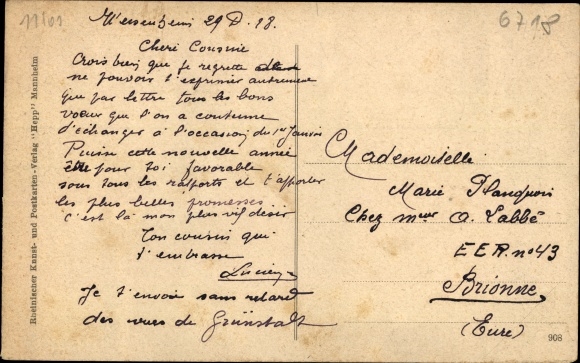 11101
6718
29 D. 18.
Cheri Cousine
Crois bien que je regrette
ne pouvoir t'exprimer autrement
que par lettre tous les bons
vœux que l'on a coutume
d'échanger à l'occasion du 1er Janvier
Puisse cette nouvelle année
être pour toi favorable
sous tous les rapports et t'apporter
les plus belles promesses
c'est là mon plus vif désir
Ton cousin qui
t'embrasse
Lucien
Je t'envoie sans retard
des vues de Grünstadt
Rheinischer Kunst- und Postkarten-Verlag "Hepp" Mannheim
Mademoiselle
Marie Planquois
Chez meur A. Labbé
E E R. no 43
Brionne
(Eure)
908